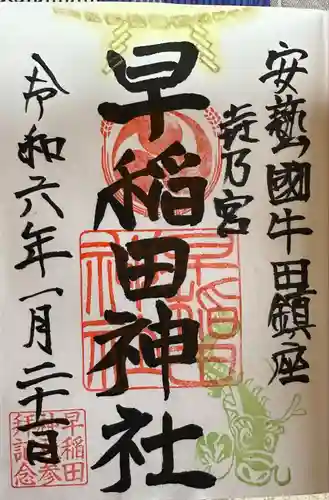 安藝國牛田鎮座
㐂乃宮
早稲田神社
令和六年一月二十一日
早稲田
神社参
拝記念